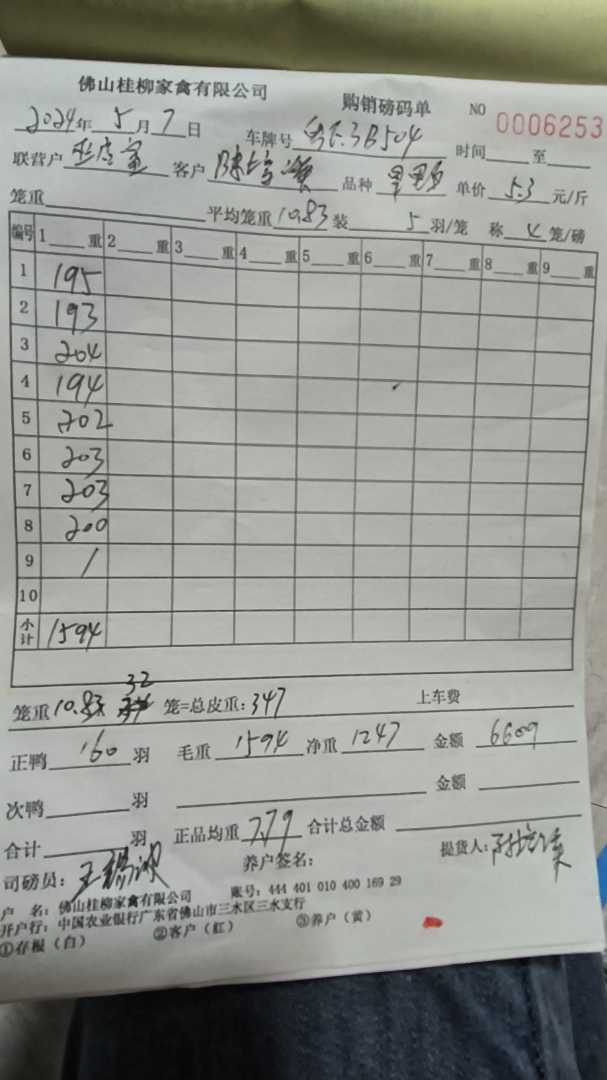 佛山桂柳家禽有限公司
购销磅码单 NO 0006253
2024年 5 月 7 日 车牌号 3B504 时间 至
联营户 客户 品种 单价 5.3 元/斤
笼重 平均笼重 10.83 装 5 羽/笼 称 4 笼/磅
编号 1 重 2 重 3 重 4 重 5 重 6 重 7 重 8 重 9 重
1 195
2 193
3 204
4 194
5 202
6 203
7 203
8 200
9 /
10
小计 1594
笼重 10.83 32 笼=总皮重: 347 上车费
正鸭 160 羽 毛重 1594 净重 1247 金额 6609
次鸭 羽 金额
合计 羽 正品均重 7.79 合计总金额
司磅员: 养户签名: 提货人:
户 名: 佛山桂柳家禽有限公司 账号: 444 401 010 400 169 29
开户行: 中国农业银行广东省佛山市三水区三水支行
①存根（白） ②客户（红） ③养户（黄）